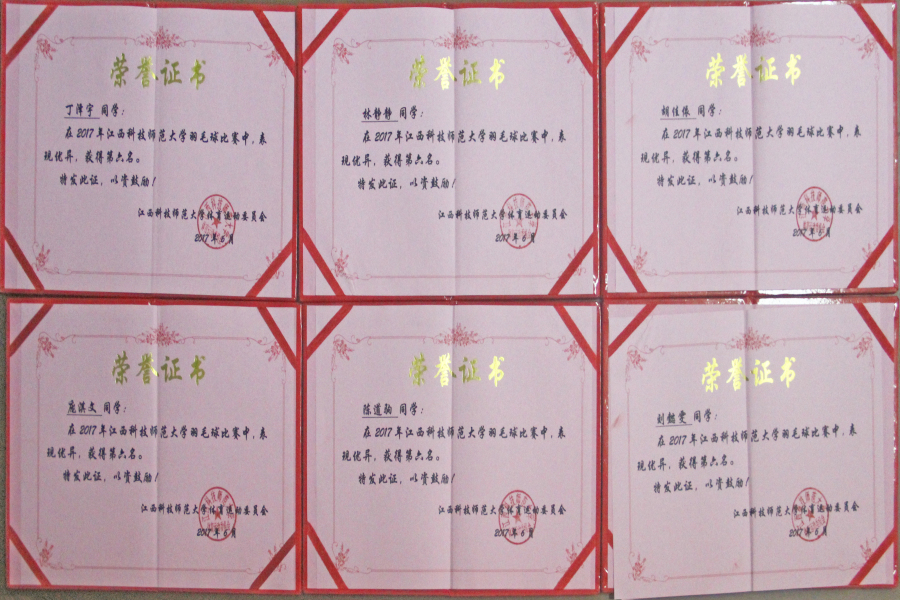 荣誉证书
丁泽宇 同学：
在2017年江西科技师范大学羽毛球比赛中，表
现优异，获得第六名。
特发此证，以资鼓励！
江西科技师范大学体育运动委员会
2017年6月
荣誉证书
林静静 同学：
在2017年江西科技师范大学羽毛球比赛中，表
现优异，获得第六名。
特发此证，以资鼓励！
江西科技师范大学体育运动委员会
2017年6月
荣誉证书
胡佳依 同学：
在2017年江西科技师范大学羽毛球比赛中，表
现优异，获得第六名。
特发此证，以资鼓励！
江西科技师范大学体育运动委员会
2017年6月
荣誉证书
淇文 同学：
在2017年江西科技师范大学羽毛球比赛中，表
现优异，获得第六名。
特发此证，以资鼓励！
江西科技师范大学体育运动委员会
2017年6月
荣誉证书
陈道驹 同学：
在2017年江西科技师范大学羽毛球比赛中，表
现优异，获得第六名。
特发此证，以资鼓励！
江西科技师范大学体育运动委员会
2017年6月
荣誉证书
刘懿雯 同学：
在2017年江西科技师范大学羽毛球比赛中，表
现优异，获得第六名。
特发此证，以资鼓励！
江西科技师范大学体育运动委员会
2017年6月